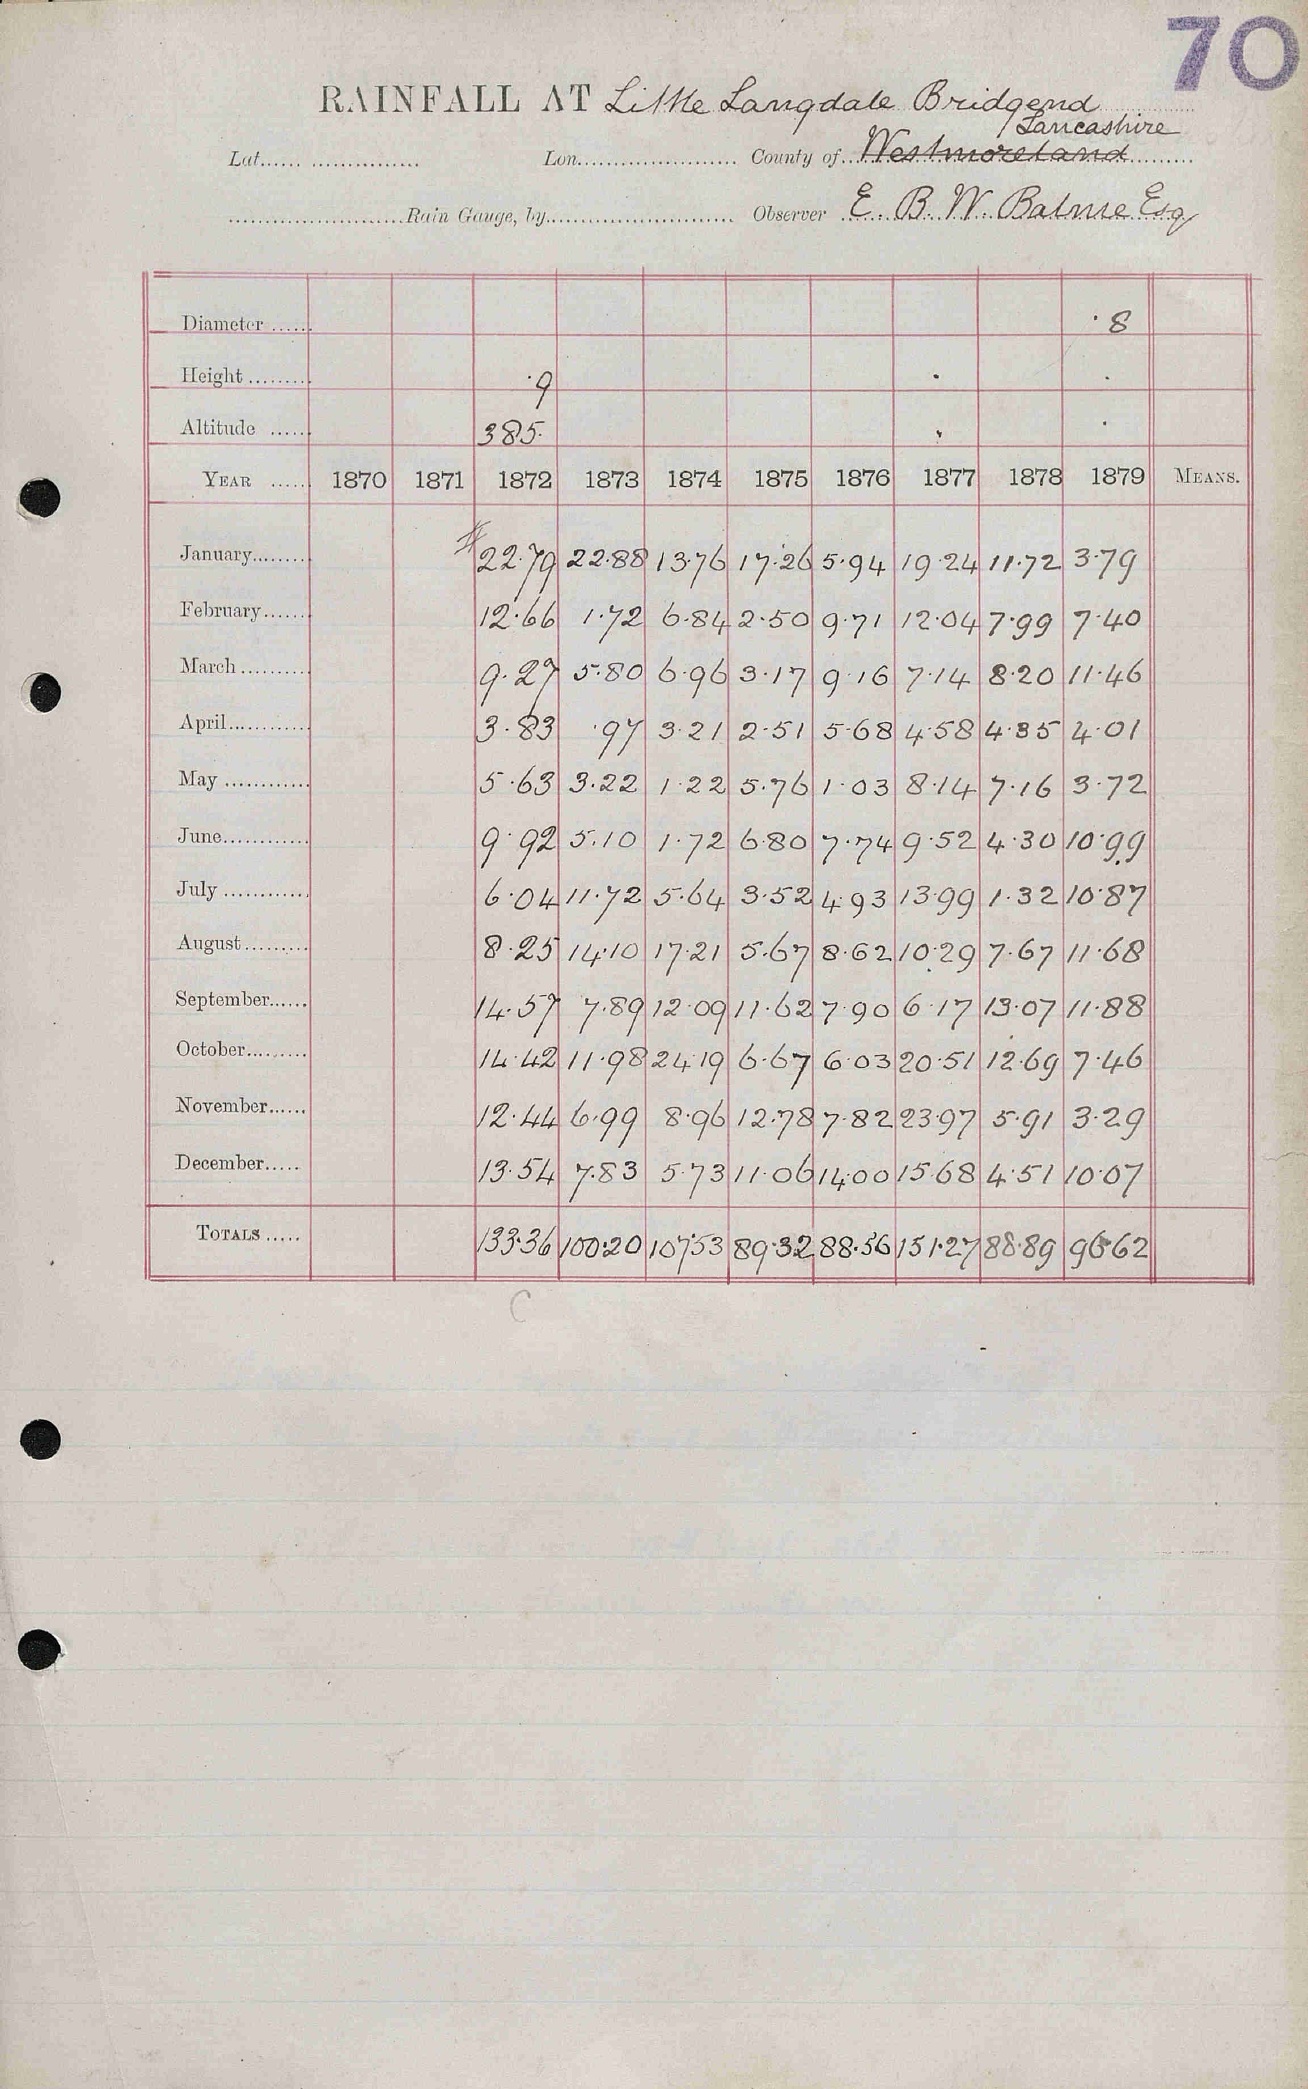 70
RAINFALL AT Little Langdale Bridgend
Lancashire
Lat. Lon. County of Westmoreland
Rain Gauge, by Observer E. B. W. Balme Esq
Diameter ·8
Height ·9
Altitude 385·
YEAR 1870 1871 1872 1873 1874 1875 1876 1877 1878 1879 MEANS.
January 22·79 22·88 13·76 17·26 5·94 19·24 11·72 3·79
February 12·66 1·72 6·84 2·50 9·71 12·04 7·99 7·40
March 9·27 5·80 6·96 3·17 9·16 7·14 8·20 11·46
April 3·83 ·97 3·21 2·51 5·68 4·58 4·35 4·01
May 5·63 3·22 1·22 5·76 1·03 8·14 7·16 3·72
June 9·92 5·10 1·72 6·80 7·74 9·52 4·30 10·99
July 6·04 11·72 5·64 3·52 4·93 13·99 1·32 10·87
August 8·25 14·10 17·21 5·67 8·62 10·29 7·67 11·68
September 14·57 7·89 12·09 11·62 7·90 6·17 13·07 11·88
October 14·42 11·98 24·19 6·67 6·03 20·51 12·69 7·46
November 12·44 6·99 8·96 12·78 7·82 23·97 5·91 3·29
December 13·54 7·83 5·73 11·06 14·00 15·68 4·51 10·07
TOTALS 133·36 100·20 107·53 89·32 88·56 151·27 88·89 96·62
C